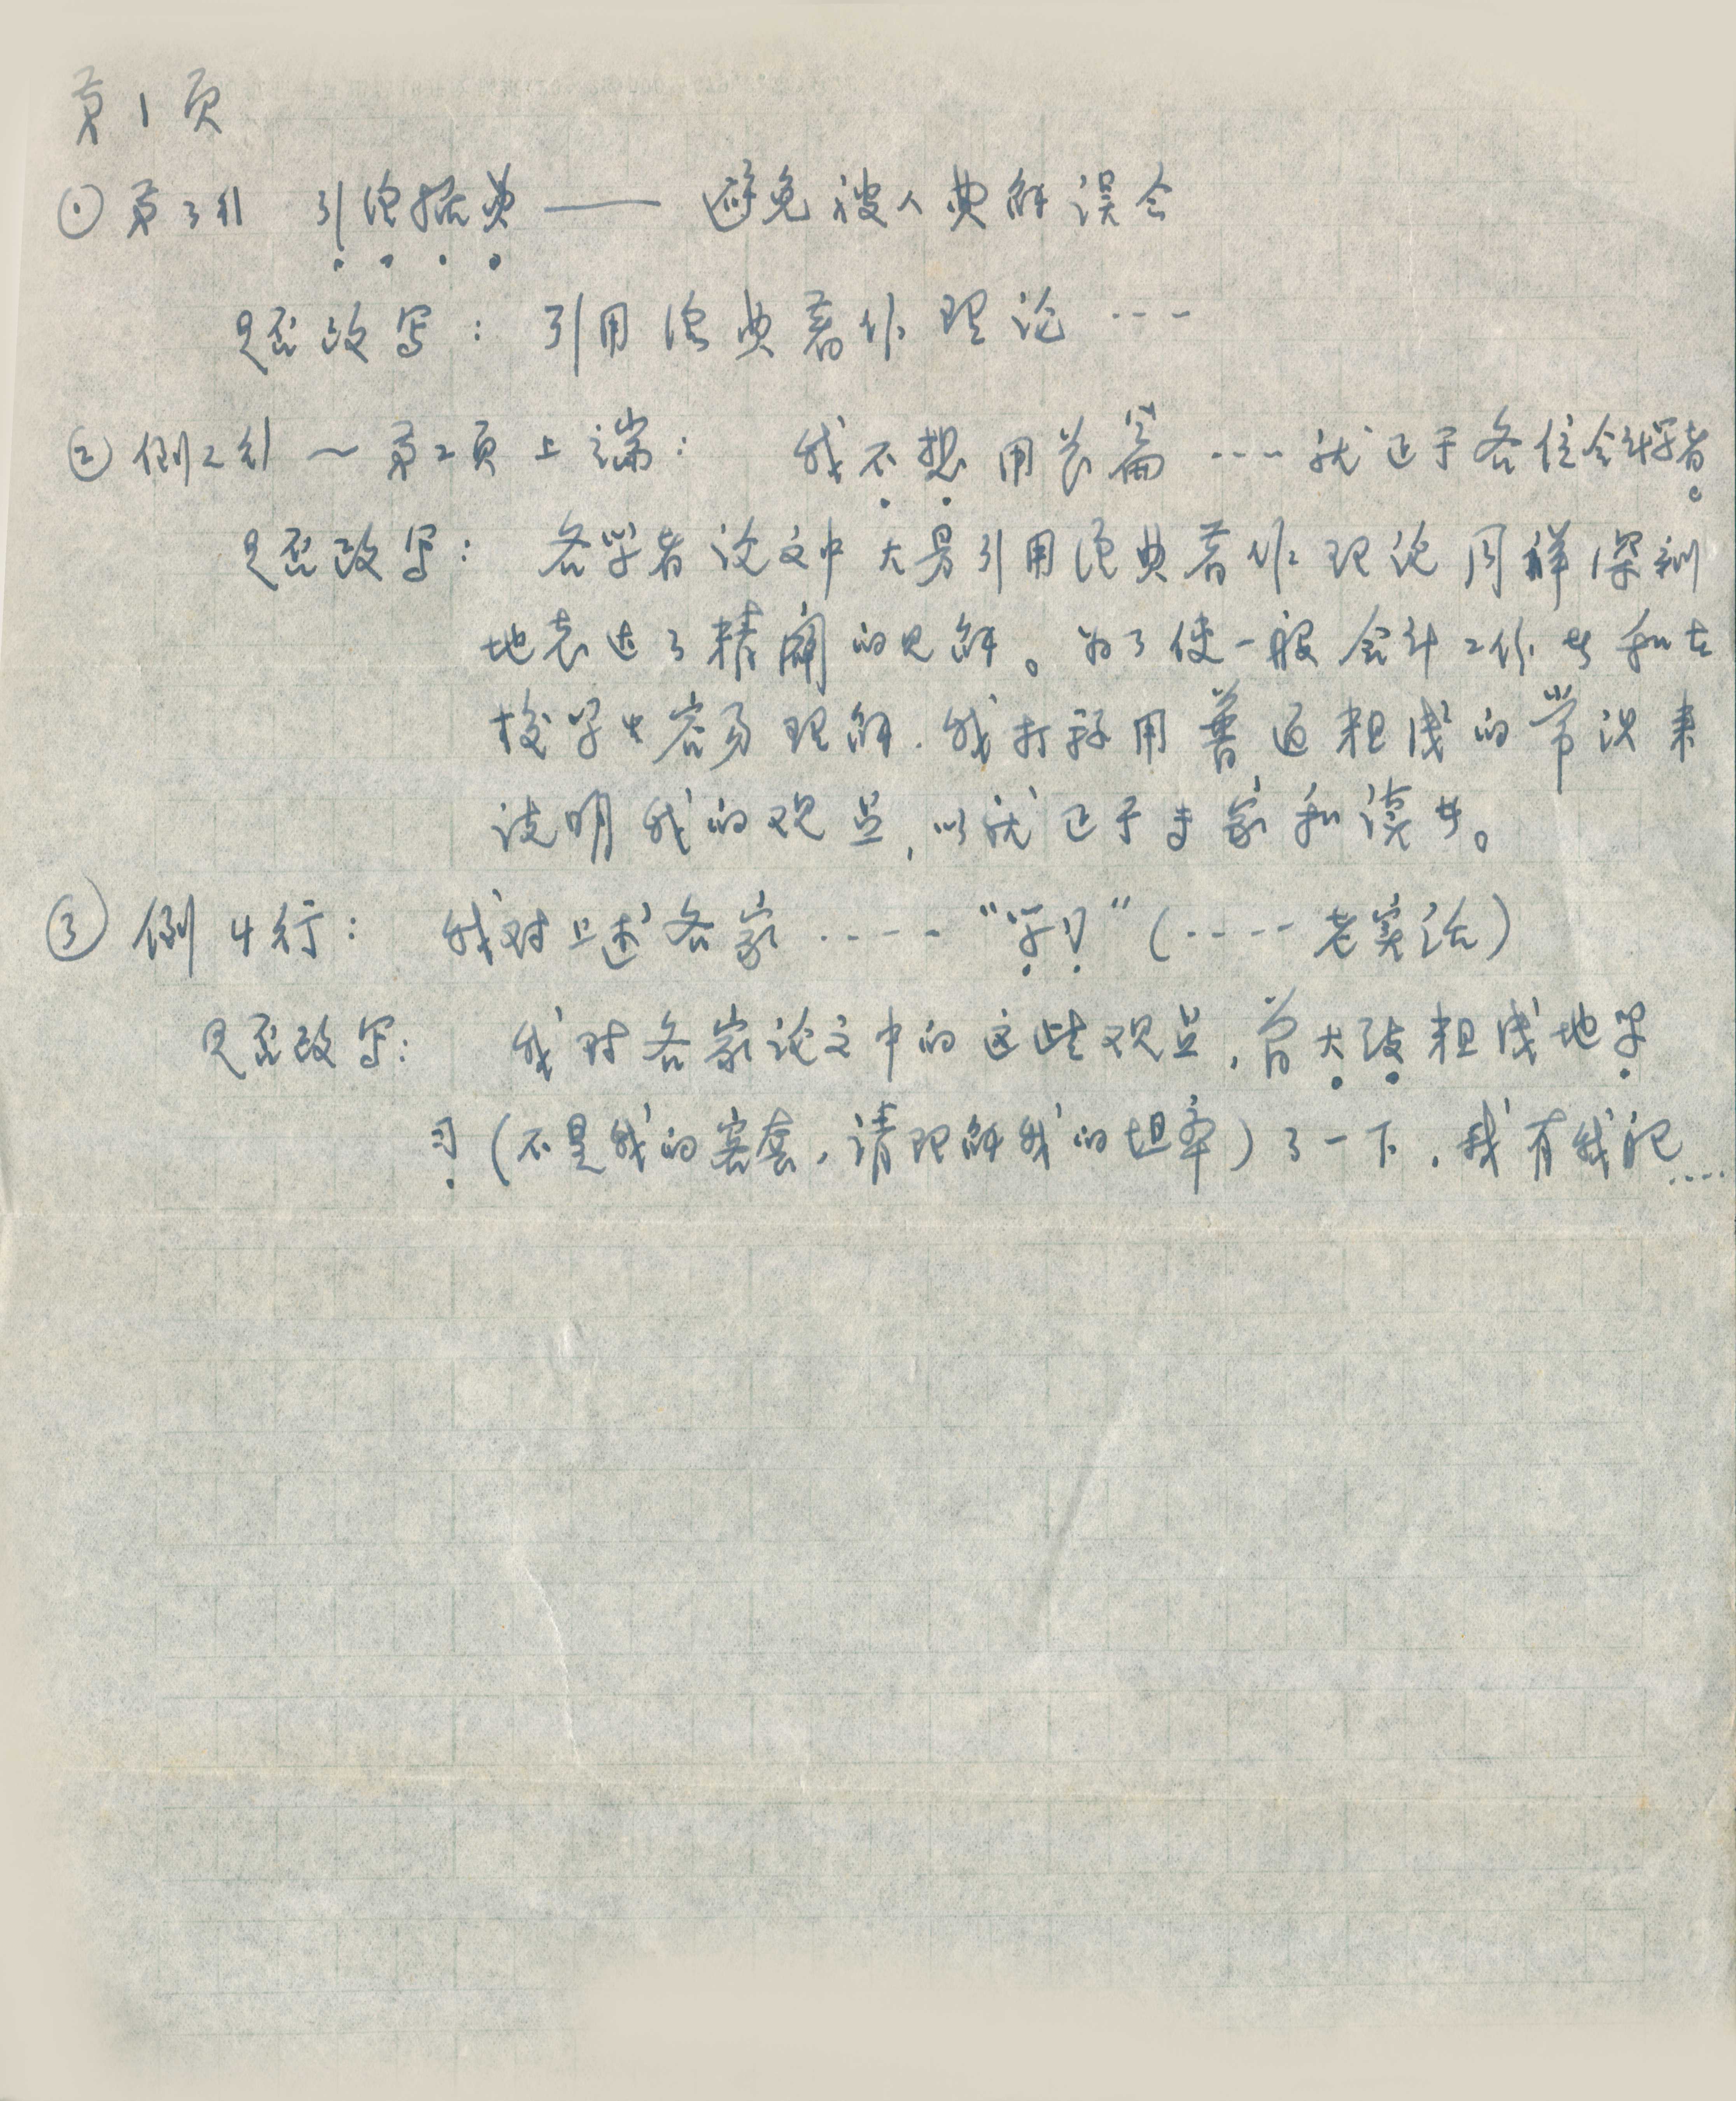 第1页
① 第3行 引经据典 —— 避免被人曲解误会
是否改写： 引用经典著作理论 ……
② 倒2行～第2页上端： 我不想用长篇 …… 就正于各位会计学者。
是否改写： 各学者论文中大量引用经典著作理论周详深刻
地表达了精阐的见解。为了使一般会计工作者和在
校学生容易理解，我打算用普通粗浅的常识来
说明我的观点，以就正于专家和读者。
③ 倒4行： 我对上述各家 …… “学习” (…… 老实话)
是否改写： 我对各家论文中的这些观点，曾大致粗浅地学
习（不是我的客套，请理解我的坦率）了一下，我有我见 ……